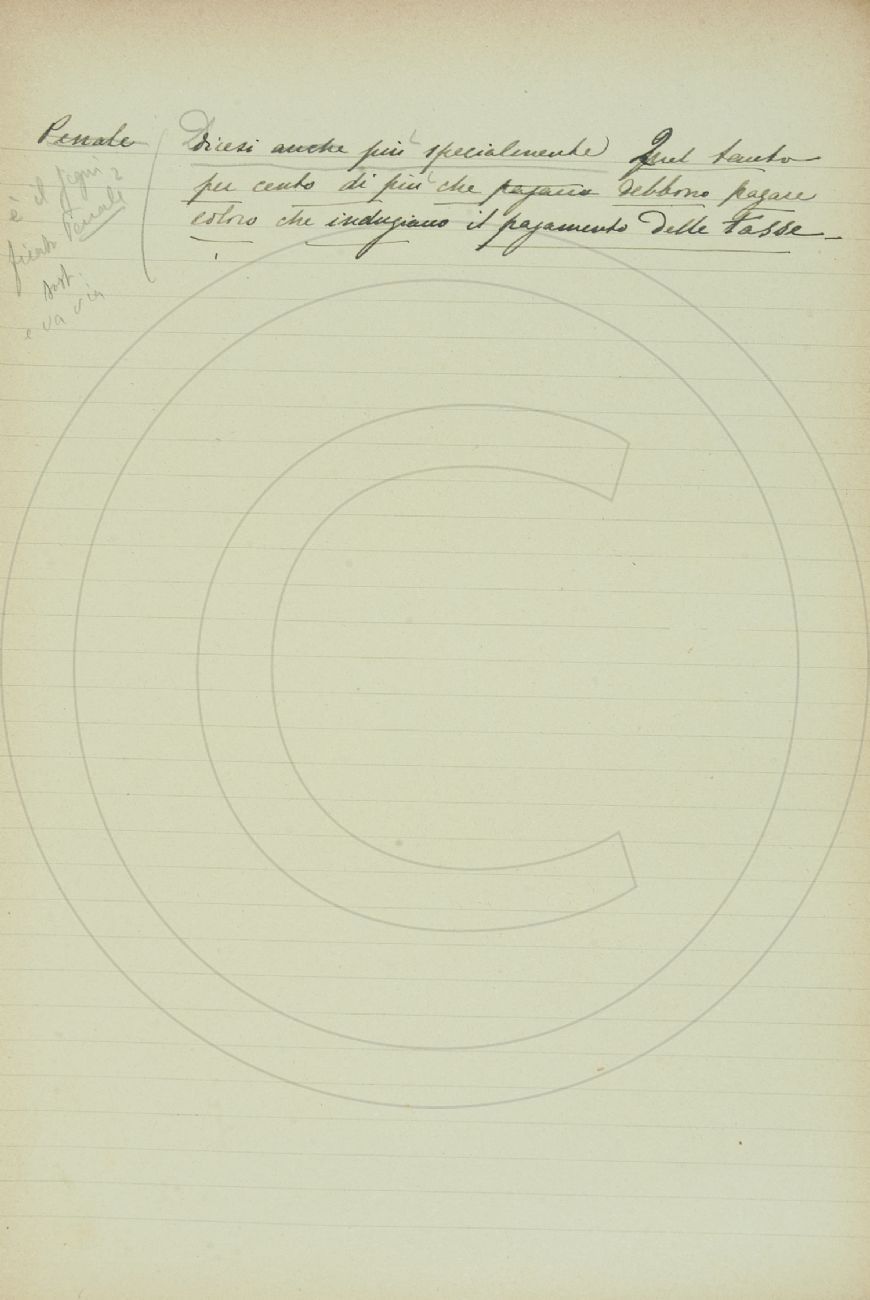 Penale
Dicesi anche più specialmente Quel tanto
per cento di più che pagano debbono pagare
coloro che indugiano il pagamento delle Tasse
è il signi
ficato Penale
sost.
e va via